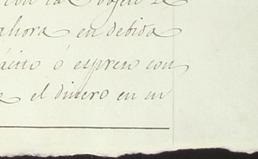 con la
ahora en debida
ácito ó espreso con
el dinero en